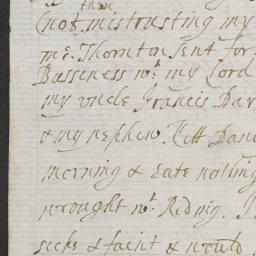 then
not mistrusting my
mr. Thornton sent for
Buseness wt my Lord
my uncle Francis Dar
& my nephew. Kitt Dan
morning & eate nothing
wrought wt Rideing. I
sicke & faint & would